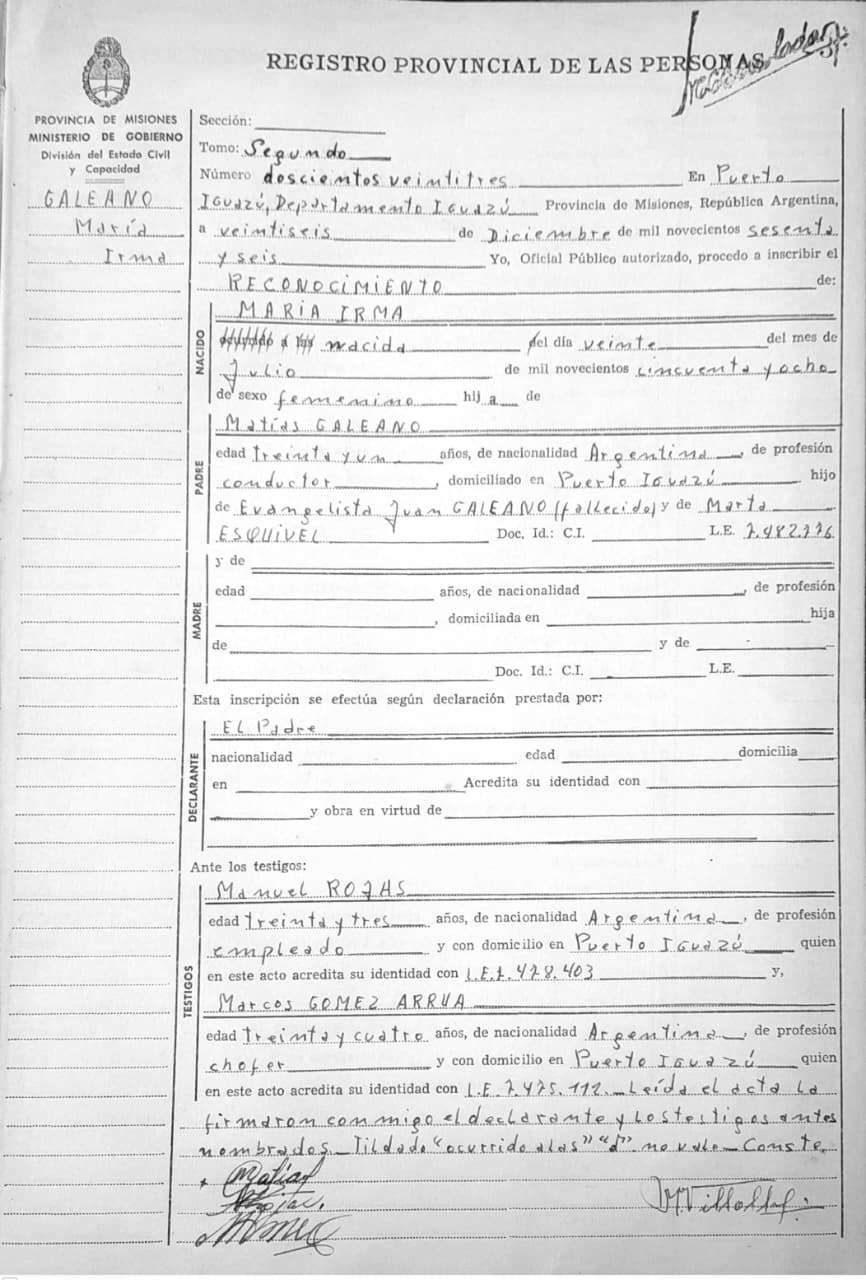 REGISTRO PROVINCIAL DE LAS PERSONAS
PROVINCIA DE MISIONES
MINISTERIO DE GOBIERNO
División del Estado Civil
y Capacidad
GALEANO
María
Irma
Sección:
Tomo: Segundo
Número doscientos veintitres En Puerto
IGUAZÚ, Departamento IGUAZÚ Provincia de Misiones, República Argentina,
a veintiseis de Diciembre de mil novecientos sesenta
y seis Yo, Oficial Público autorizado, procedo a inscribir el
RECONOCIMIENTO de:
NACIDO
MARIA IRMA
nacida del día veinte del mes de
Julio de mil novecientos cincuenta y ocho
de sexo femenino hija de
PADRE
Matías GALEANO
edad treinta y un años, de nacionalidad Argentina, de profesión
conductor, domiciliado en Puerto IGUAZÚ hijo
de Evangelista Juan GALEANO (fallecido) y de Marta
ESQUIVEL Doc. Id.: C.I. L.E. 7.482.776
MADRE
y de
edad años, de nacionalidad , de profesión
, domiciliada en hija
de y de
Doc. Id.: C.I. L.E.
Esta inscripción se efectúa según declaración prestada por:
DECLARANTE
El Padre
nacionalidad edad domicilia
en Acredita su identidad con
y obra en virtud de
Ante los testigos:
TESTIGOS
Manuel ROJAS
edad treinta y tres años, de nacionalidad Argentina, de profesión
empleado y con domicilio en Puerto IGUAZÚ quien
en este acto acredita su identidad con L.E. 478.403 y,
Marcos GOMEZ ARRUA
edad treinta y cuatro años, de nacionalidad Argentina, de profesión
chofer y con domicilio en Puerto IGUAZÚ quien
en este acto acredita su identidad con L.E. 7.475.112. Leída el acta la
firmaron conmigo el declarante y los testigos antes
nombrados. Tildado "ocurrido a las" "d" no vale. Conste.
Matías